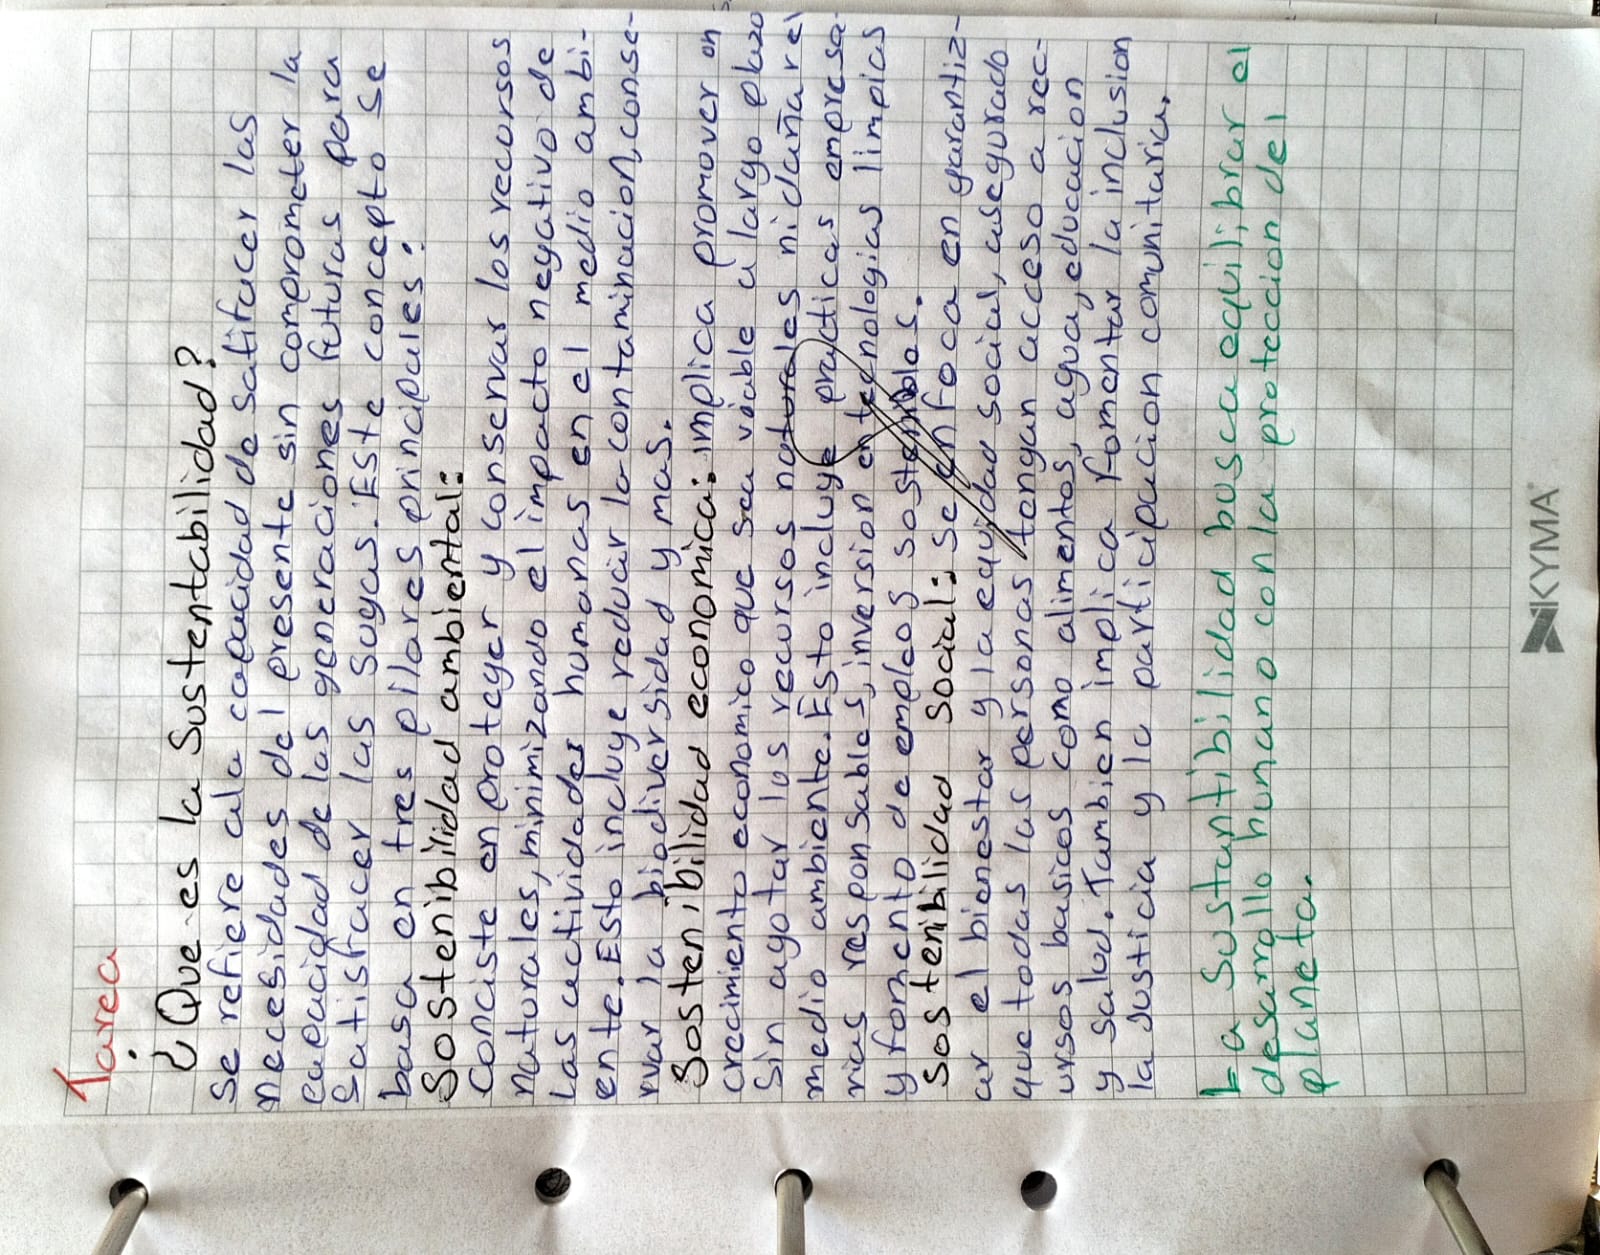 Tarea
¿Que es la Sustentabilidad?
Se refiere ala capacidad de satifacer las
necesidades del presente sin comprometer la
capacidad de las generaciones futuras para
Satisfacer las suyas. Este concepto se
basa en tres pilares principales:
Sostenibilidad ambiental:
Conciste en proteger y conservar los recursos
naturales, minimizando el impacto negativo de
Las actividades humanas en el medio ambi-
ente. Esto incluye reducir la contaminacion, conse-
rvar la biodiversidad y mas.
Sostenibilidad economica: implica promover on
crecimiento economico que sea viable a largo plazo
Sin agotar los recursos naturales ni dañar el
medio ambiente. Esto incluye practicas empresa-
rias responsables, inversion en tecnologias limpias
y fomento de empleos sostenibles.
Sostenibilidad Social: Se enfoca en garantiz-
ar el bienestar y la equidad social, asegurado
que todas las personas tengan acceso a rec-
ursos basicos como alimentos, agua, educacion
y salud. Tambien implica fomentar la inclusion
la Justicia y la participacion comunitaria.
La Sustantibilidad busca equilibrar el
desarrollo humano con la proteccion del
planeta.
KYMA